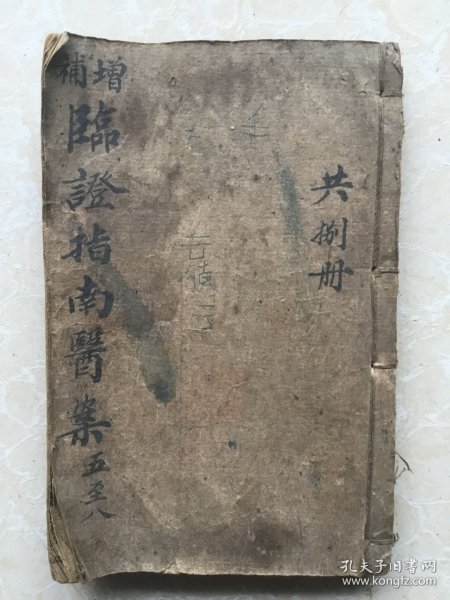 增補
臨證指南醫案五至八
共捌册
孔夫子旧书网
www.kongfz.com